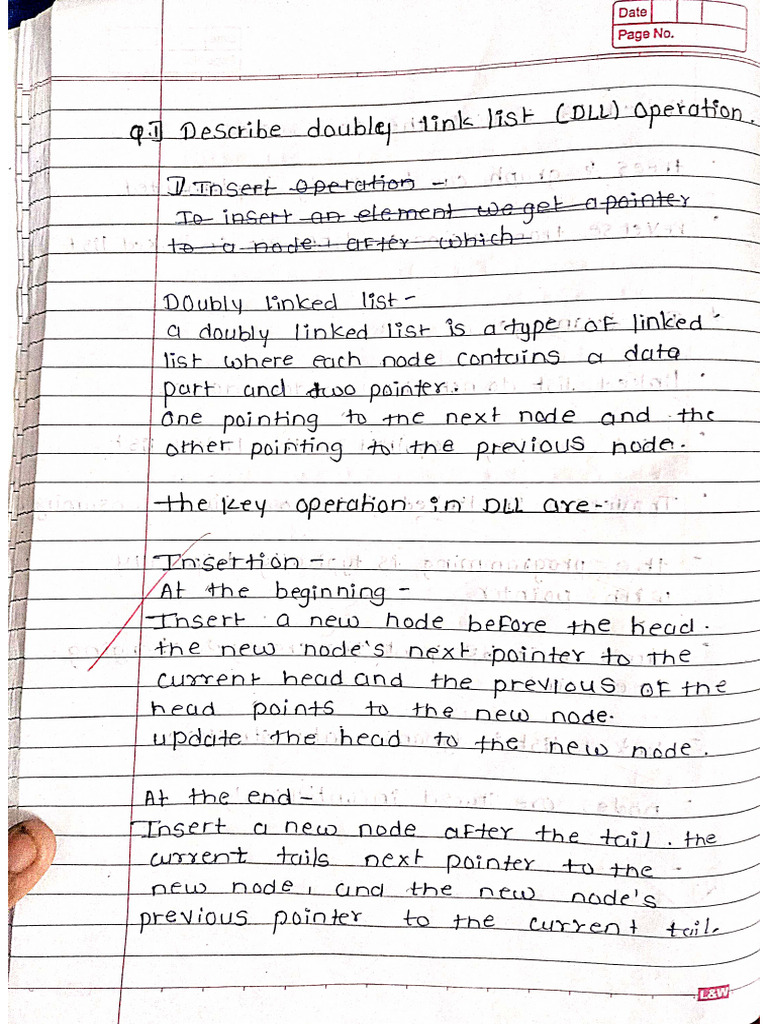 Date
Page No.
Q.1] Describe doubley link list (DLL) operation.
1) Insert operation -
To insert an element we get a pointer
to a node after which
Doubly linked list -
a doubly linked list is a type of linked
list where each node contains a data
part and two pointer.
One pointing to the next node and the
other pointing to the previous node.
the key operation in DLL are -
Insertion -
At the beginning -
Insert a new node before the head.
the new node's next pointer to the
current head and the previous of the
head points to the new node.
update the head to the new node.
At the end -
Insert a new node after the tail. the
current tails next pointer to the
new node, and the new node's
previous pointer to the current tail.
L&W